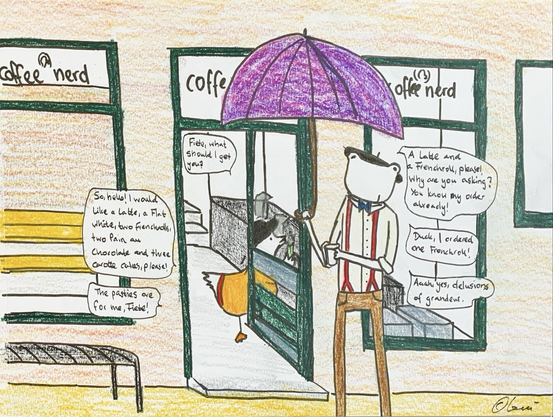 coffee nerd
coffe
offee nerd
Fiete, what
should I get
you?
A Latte and
a Frenchroll, please!
Why are you asking?
You know my order
already!
So, hello! I would
like a Latte, a Flat
White, two Frenchrolls,
two Pain au
Chocolats and three
carotte cakes, please!
Duck, I ordered
one Frenchroll!
The pastries are
for me, Fiete!
Aaah yes, delusions
of grandeur.